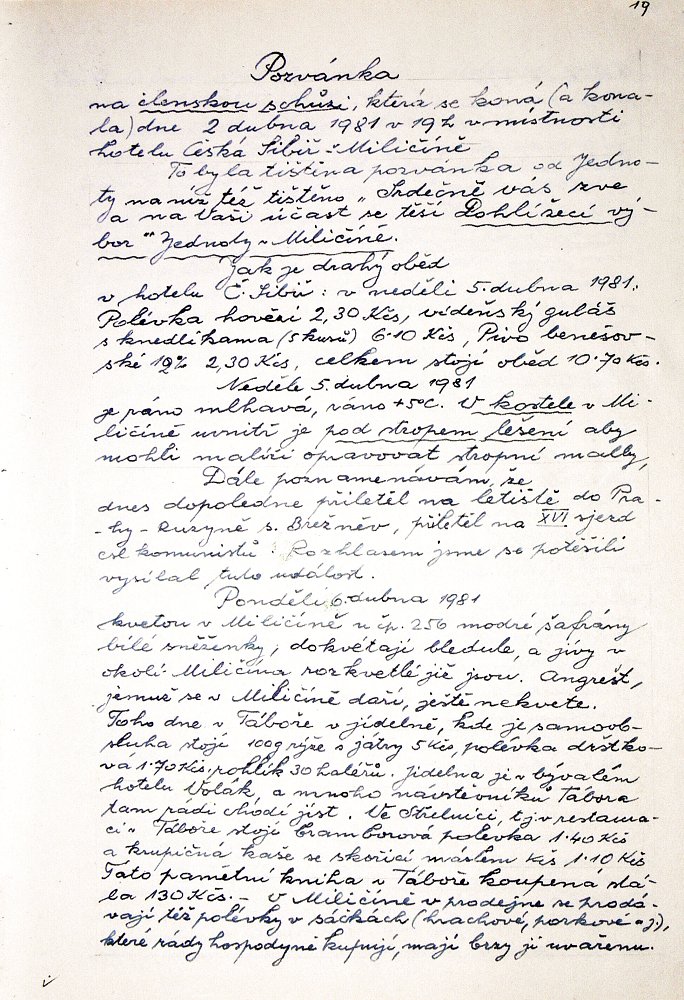 19
Pozvánka
na členskou schůzi, která se koná (a kona-
la) dne 2 dubna 1981 v 19 h v místnosti
hotelu Česká Sibiř v Miličíně
To byla tištěna pozvánka od Jedno-
ty na níž též tištěno „Srdečně vás zve
a na Vaši účast se těší Dohlížecí vý-
bor "" Jednoty v Miličíně.
Jak je drahý oběd
v hotelu Č. Sibiř: v neděli 5. dubna 1981:
Polévka hovězí 2,30 Kčs, vídeňský guláš
s knedlíkama (5 kusů) 6·10 Kčs, Pivo benešov-
ské 12% 2,30 Kčs, celkem stojí oběd 10·70 Kčs.
Neděle 5. dubna 1981
je ráno mlhavá, ráno +5°C. V kostele v Mi-
ličíně uvnitř je pod stropem lešení aby
mohli malíři opavovat stropní malby,
Dále poznamenávám, že
dnes dopoledne přiletěl na letiště do Pra-
-hy-Ruzyně s. Brežněv, přiletěl na XVI sjezd
čsl komunistů. Rozhlasem jsme se potěšili
vysílal tuto událost.
Pondělí 6. dubna 1981
kvetou v Miličíně u čp. 256 modré šafrány
bílé sněženky, dokvétají bledule, a jívy v
okolí Miličína rozkvetlé již jsou. Angrešt,
jemuž se v Miličíně daří, ještě nekvete.
Toho dne v Táboře v jídelně, kde je samoob-
sluha stojí 100g rýže s játry 5 Kčs, polévka držtko-
vá 1·70 Kčs, rohlík 30 haléřů. Jídelna je v bývalém
hotelu Volák, a mnoho návštěvníků Tábora
tam rádi chodí jíst. Ve Střelnici, tj v restaura-
ci v Táboře stojí bramborová polévka 1·40 Kčs
a krupičná kaše se skořicí máslem Kčs 1·10 Kčs
Tato pamětní kniha v Táboře koupená stá-
la 130 Kčs.- V Miličíně v prodejne se prodá-
vají též polévky v sáčkách (hrachové, porkové a j.),
které rády hospodyně kupují, mají brzy ji uvařenu.